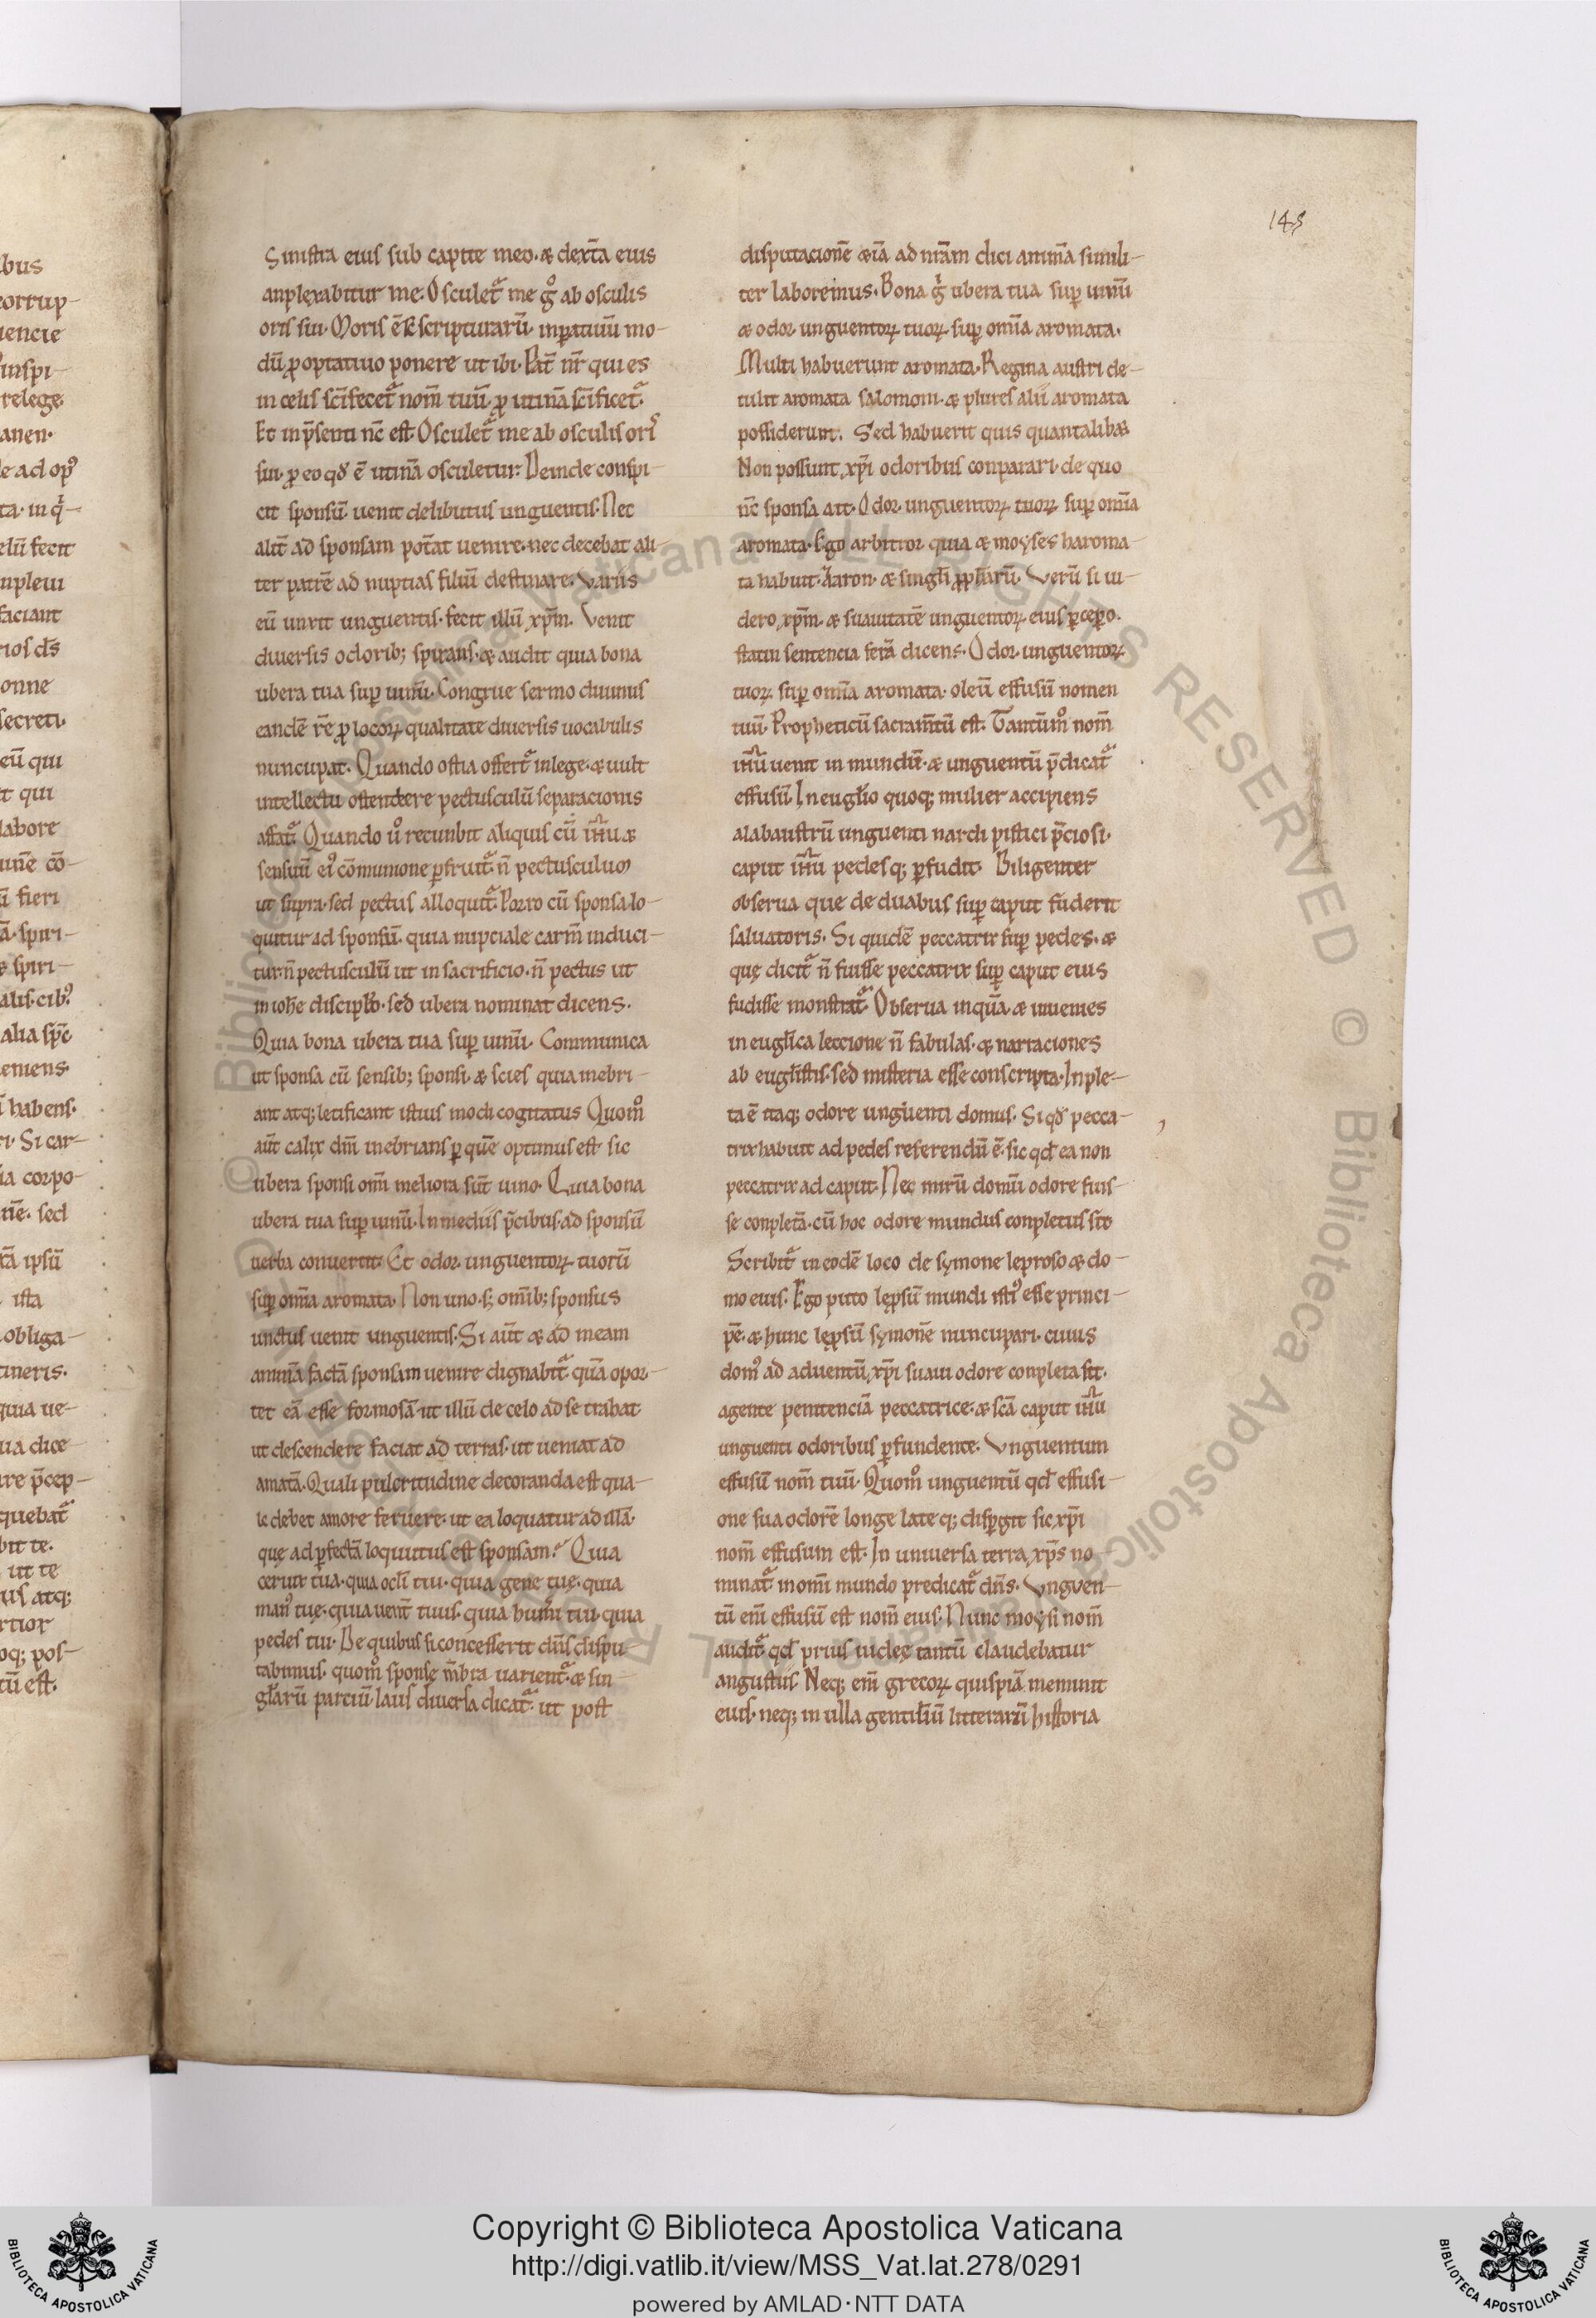 145
Sinistra eius sub capite meo. & dext̄a eius
anplexabitur me. Osculet᷑ me g̊ ab osculis
oris sui. Moris ē & scripturarū inp̄atiuū mo-
dū ꝓ optatiuo ponere ut ibi. Pat̄ nr̄ qui es
in celis sc̄ificet᷑ nom̄ tuū. ꝓ utinā sc̄ificet᷑.
Et in p̄senti nc̄ est. Osculet᷑ me ab osculis oris
sui. ꝓ eo qd̄ ē utinā osculetur. Deinde conspi-
cit sponsū. uenit delibutus unguentis. Nec
alit̄ ad sponsam pot̄at uenire. nec decebat ali-
ter patrē ad nuptias filiū destinare. Variis
eū unxit unguentis. fecit illū xp̄m. Venit
diuersis odorib; spirans. & audit quia bona
ubera tua suꝑ uinū. Congrue sermo diuinus
eandē rē ꝓ locoꝝ qualitate diuersis uocabulis
nuncupat. Quando ostia offert᷑ in lege. & uult
intellectu ostendere pectusculū separacionis
affat᷑. Quando ů recunbit aliquis cū ih̄u &
sensuū ei᷒ cōmunione ꝑfruit᷑. n̄ pectusculum
ut supra. sed pectus alloquit᷑. Porro cū sponsa lo-
quitur ad sponsū. quia nupciale carm̄ induci-
tur n̄ pectusculū ut in sacrificio. n̄ pectus ut
in ioh̄e discipl̄o. sed ubera nominat dicens.
Quia bona ubera tua suꝑ uinū. Communica
ut sponsa cū sensib; sponsi. & scies quia inebri-
ant atq; letificant istius modi cogitatus. Quom̊
aut̄ calix dn̄i inebrians ꝑ quē optimus est. sic
ubera sponsi om̄i meliora sūt uino. Quia bona
ubera tua suꝑ uinū. In mediis p̄cibus. ad sponsū
uerba conuertit. Et odor unguentoꝝ tuorū
suꝑ om̄ia aromata. Non uno. s; om̄ib; sponsus
unctus uenit unguentis. Si aut̄ & ad meam
animā factā sponsam uenire dignabit᷑. quā opor-
tet eā esse formosā. ut illū de celo ad se trahat
ut descendere faciat ad terras. ut ueniat ad
amatā. Quali pulcritudine decoranda est. qua-
le debet amore feruere. ut ea loquatur ad illā.
quę ad ꝑfectā loquutus est sponsam. Quia
ceruix tua. quia ocl̄i tui. quia gene tuę. quia
man᷒ tuę. quia uent̄ tuus. quia hum̄i tui. quia
pedes tui. De quibus si concesserit dn̄s dispu-
tabimus. quom̊ sponsę m̄bra uarient᷑. & sin-
gl̄arū parciū laus diuersa dicat᷑. ut post
disputacionē & iā ad nr̄am dici animā simili-
ter laboremus. Bona g̊ ubera tua suꝑ uinū
& odor unguentoꝝ tuoꝝ suꝑ om̄ia aromata.
Multi habuerunt aromata. Regina austri de-
tulit aromata salomoni. & plures alii aromata
possiderunt. Sed habuerit quis quantalibet.
Non possunt xp̄i odoribus conparari. de quo
nc̄ sponsa ait. Odor unguentoꝝ tuoꝝ suꝑ om̄ia
aromata. Ego arbitror quia & moyses haroma-
ta habuit. Aaron. & singl̄i ꝓph̄arū. Verū si ui-
dero xp̄m. & suauitatē unguentoꝝ eius ꝑceꝑo.
statim sentencia ferā dicens. Odor unguentoꝝ
tuoꝝ suꝑ om̄ia aromata. oleū effusū nomen
tuū. Propheticū sacram̄tū est. Tantūm̊ nom̄
ih̄u uenit in mundū. & unguentū p̄dicat᷑
effusū. In eugl̄io quoq; mulier accipiens
alabaustrū unguenti nardi pistici p̄ciosi.
caput ih̄u pedesq; ꝑfudit. Diligenter
obserua que de duabus suꝑ caput fuderit
saluatoris. Si quidē peccatrix suꝑ pedes. &
quę dicit᷑ n̄ fuisse peccatrix suꝑ caput eius
fudisse monstrat᷑. Obserua inquā. & inuenies
in eugl̄ica leccione n̄ fabulas. & narraciones
ab eugl̄istis. sed misteria esse conscripta. Inple-
ta ē itaq; odore unguenti domus. Si qd̄ pecca-
trix habuit ad pedes referendū ē. sic qd̄ ea non
peccatrix ad caput. Nec mirū domū odore fuis-
se conpletā. cū hoc odore mundus conpletus sit.
Scribit᷑ in eodē loco de symone leproso & do-
mo eius. Ego puto lępsū mundi isti᷒ esse princi-
pē. & hunc lępsū symonē nuncupari. cuius
dom᷒ ad aduentū xp̄i suaui odore conpleta sit.
agente penitenciā peccatrice. & sc̄a caput ih̄u
unguenti odoribus ꝑfundente. Vnguentum
effusū nom̄ tuū. Quom̊ unguentū qd̄ effusi-
one sua odorē longe lateq; disꝑgit sic xp̄i
nom̄ effusum est. In uniuersa terra xp̄s no-
minat᷑ in om̄i mundo predicat᷑ dn̄s. Vnguen-
tū em̄ effusū est nom̄ eius. Nunc moysi nom̄
audit᷑. qd̄ prius iudeę tantū claudebatur
angustiis. Neq; em̄ grecoꝝ quispiā meminit
eius. neq; in ulla gentiliū litterarū historia
Copyright © Biblioteca Apostolica Vaticana
http://digi.vatlib.it/view/MSS_Vat.lat.278/0291
powered by AMLAD·NTT DATA
BIBLIOTECA APOSTOLICA VATICANA
BIBLIOTECA APOSTOLICA VATICANA